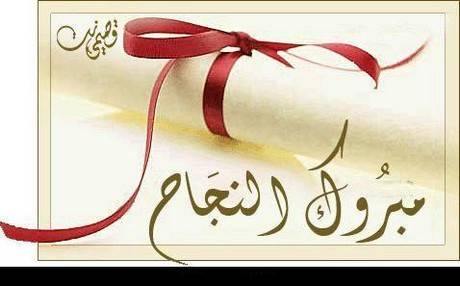 قصيمي نت
مبرُوك النجَاح